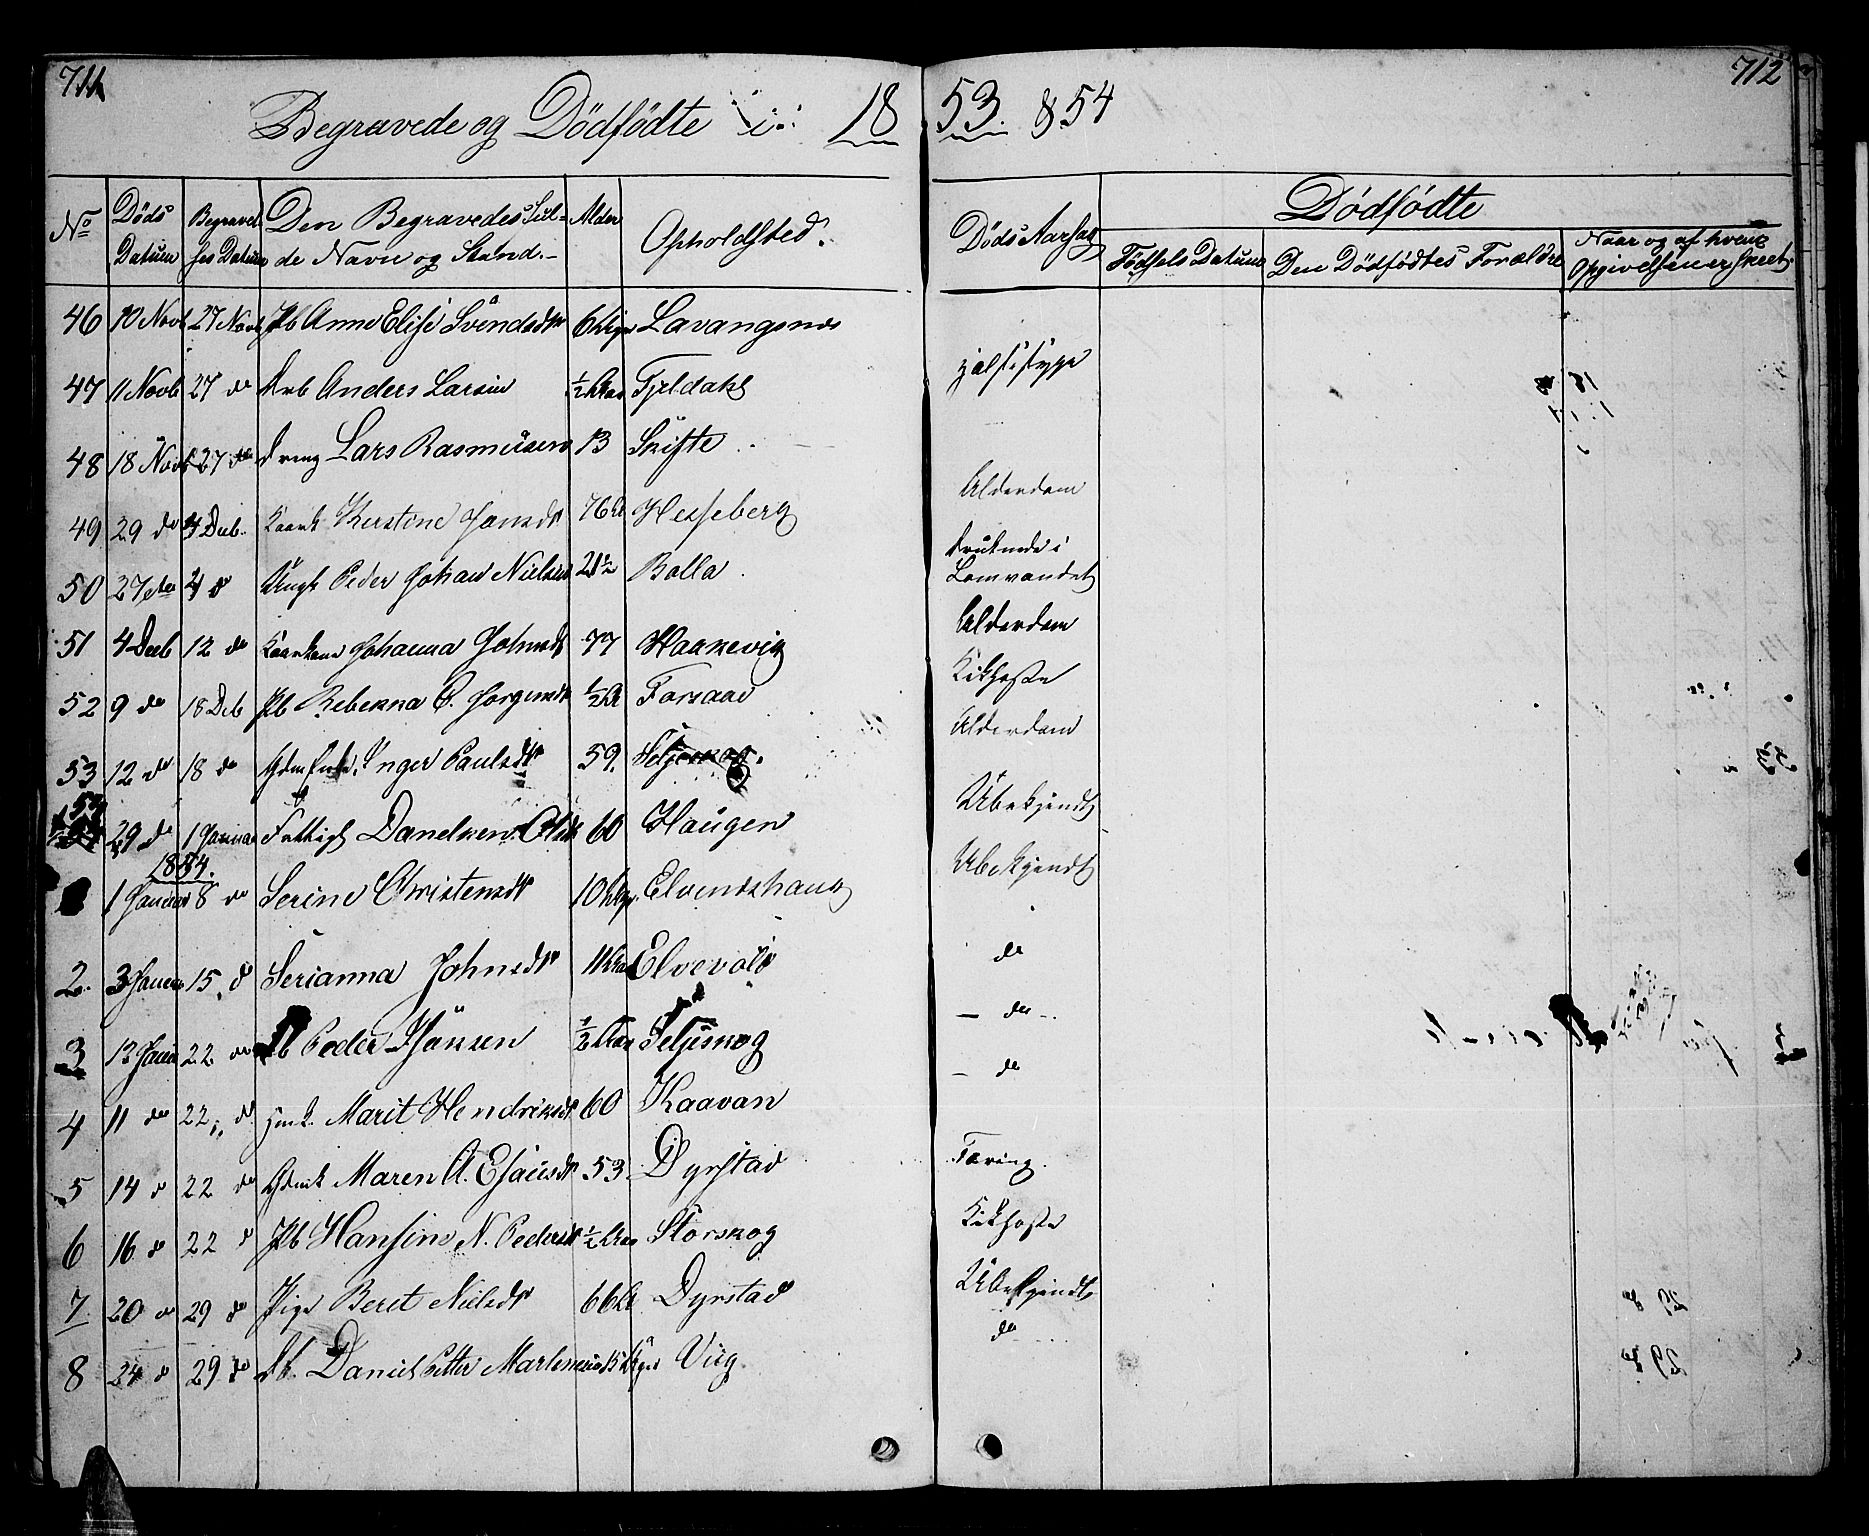 711 712
Begravede og Dödfödte i 18 53 & 54
No Döds Datum Begravel ses Datum Den Begravedes Fulde Navn og Stand. Alder Opholdsted. Döds Aarsag Dödfödte
Födsels Datum Den Dödfödtes Forældre Naar og af hvem Opgivelsen er skeet
46 10 Novb 27 Novb Pb Anne Elise Svendsdtr 6 Uger Lavangsnes
47 11 Novb 27 do Drb Anders Larsen 1/2 Aar Fjeldahl
48 18 Novb 27 do Dreng Lars Rasmüsen 13 Skifte
49 29 do 4 Decb. Kaark Kerstine Hansdr 76 Hesseberg Alderdom
50 27 de 4 d Ungk Peder Johan Nielsen 21 1/2 Balla Druknede i Lomvandet
51 4 Decb 12 do Johanna Johnsdr 77 Haakevig Alderdom
52 9 do 18 Deb Pb Rebekka C. Jorgensdr 1/2 Forsaae Kikhoste
53 12 do 18 do Inger Paulsdr 59. Seljeskog. Alderdom
54 29 do 1 Januar Fattigl Danelken Olsdr 60 Haugen Ubekjendt
1854.
1 Januar 8 do Serine Christensdr 10 Uger Elvendshaug Ubekjendt
2. 3 Januar 15, d Serianna Johnsdr Elvevold do
3 13 Januar 22 do Peder Hansen 1/2 Aar Seljeskog — do
4 11 do 22 d Marit Hendriksdr 60 Kaavan — do
5 14 d 22 do Maren A. Esaiasdr 53 Dyrstad Tæring
6 16 d 22 d Pb Hansine N. Pedersdr 1/2 Aar Storskog Kikhoste
7 20 d 29 d Pige Beret Nielsdr 66 Dyrstad Ubekjendt
8 24 d 29 d Db. Daniel Petter 15 Uger Viig do